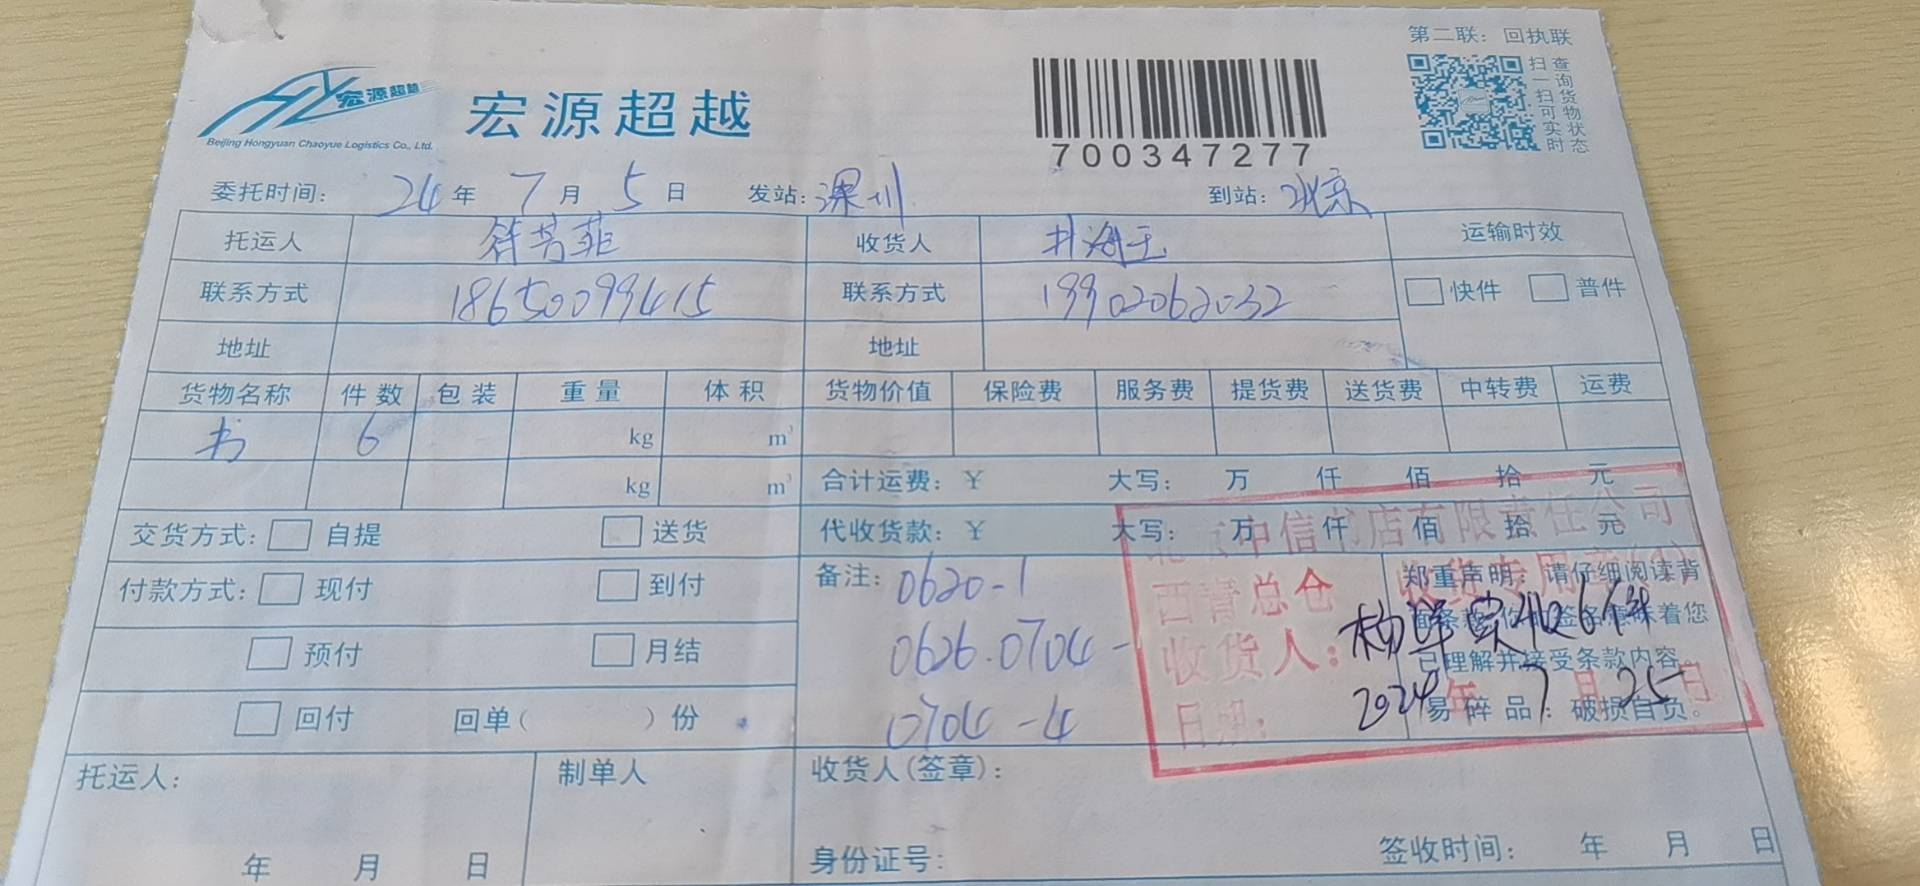 第二联：回执联
宏源超越
Beijing Hongyuan Chaoyue Logistics Co., Ltd.
宏源超越
700347277
扫一扫可实时
查询货物状态
委托时间：24年7月5日 发站：深圳 到站：北京
托运人 符芳菲 收货人 运输时效
联系方式 18650099415 联系方式 19902062032 快件 普件
地址 地址
货物名称 件数 包装 重量 体积 货物价值 保险费 服务费 提货费 送货费 中转费 运费
书 6 kg m³
kg m³ 合计运费：￥ 大写： 万 仟 佰 拾 元
交货方式： 自提 送货 代收货款：￥ 大写： 万 仟 佰 拾 元
付款方式： 现付 到付 备注：0620-1
预付 月结 0626.0704-
回付 回单（ ）份 0704-4
北京中信书店有限责任公司
西青总仓 收货专用章(1)
收货人：杨洋 实收6件
日期：2024年7月25日
郑重声明：请仔细阅读背
面条款，你的签名意味着您
已理解并接受条款内容。
易碎品：破损自负。
托运人： 制单人 收货人(签章)：
年 月 日 身份证号： 签收时间： 年 月 日